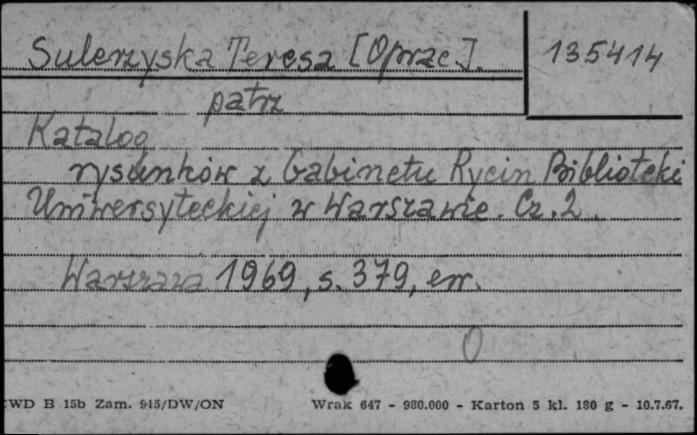 Sulerzyska Teresa [Oprac].
135414
patrz
Katalog
rysunków z Gabinetu Rycin Biblioteki
Uniwersyteckiej w Warszawie. Cz. 2.
Warszawa 1969, s. 379, err.
0
WD B 15b Zam. 915/DW/ON Wrak 647 - 980.000 - Karton 5 kl. 180 g - 10.7.67.